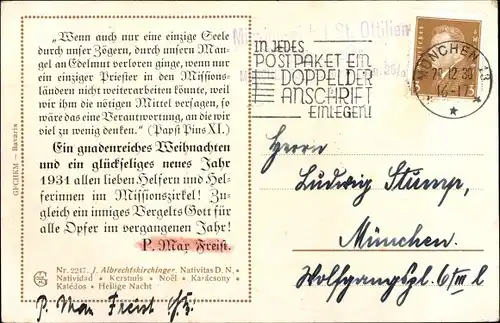 „Wenn auch nur eine einzige Seele
durch unser Zögern, durch unsern Man-
gel an Edelmut verloren ginge, wenn nur
ein einziger Priester in den Missions-
ländern nicht weiterarbeiten könnte, weil
wir ihm die nötigen Mittel versagen, so
wäre das eine Verantwortung, an die wir
viel zu wenig denken.“ (Papst Pius XI.)
Ein gnadenreiches Weihnachten
und ein glückseliges neues Jahr
1931 allen lieben Helfern und Hel-
ferinnen im Missionszirkel! Zu-
gleich ein inniges Vergelts Gott für
alle Opfer im vergangenen Jahr!
P. Max Freist.
Nr. 2247. J. Albrechtskirchinger. Nativitas D. N.
Natividad • Kerstnis • Noël • Karácsony
Kalėdos • Heilige Nacht
P. Max Freist
Bavaria
St. Ottilien
IN JEDES
POSTPAKET EIN
DOPPEL DER
ANSCHRIFT
EINLEGEN!
MÜNCHEN 13
12.30
16-17
3
Herrn
Ludwig Stumpf,
München.
Wolfgangspl. 6/III l